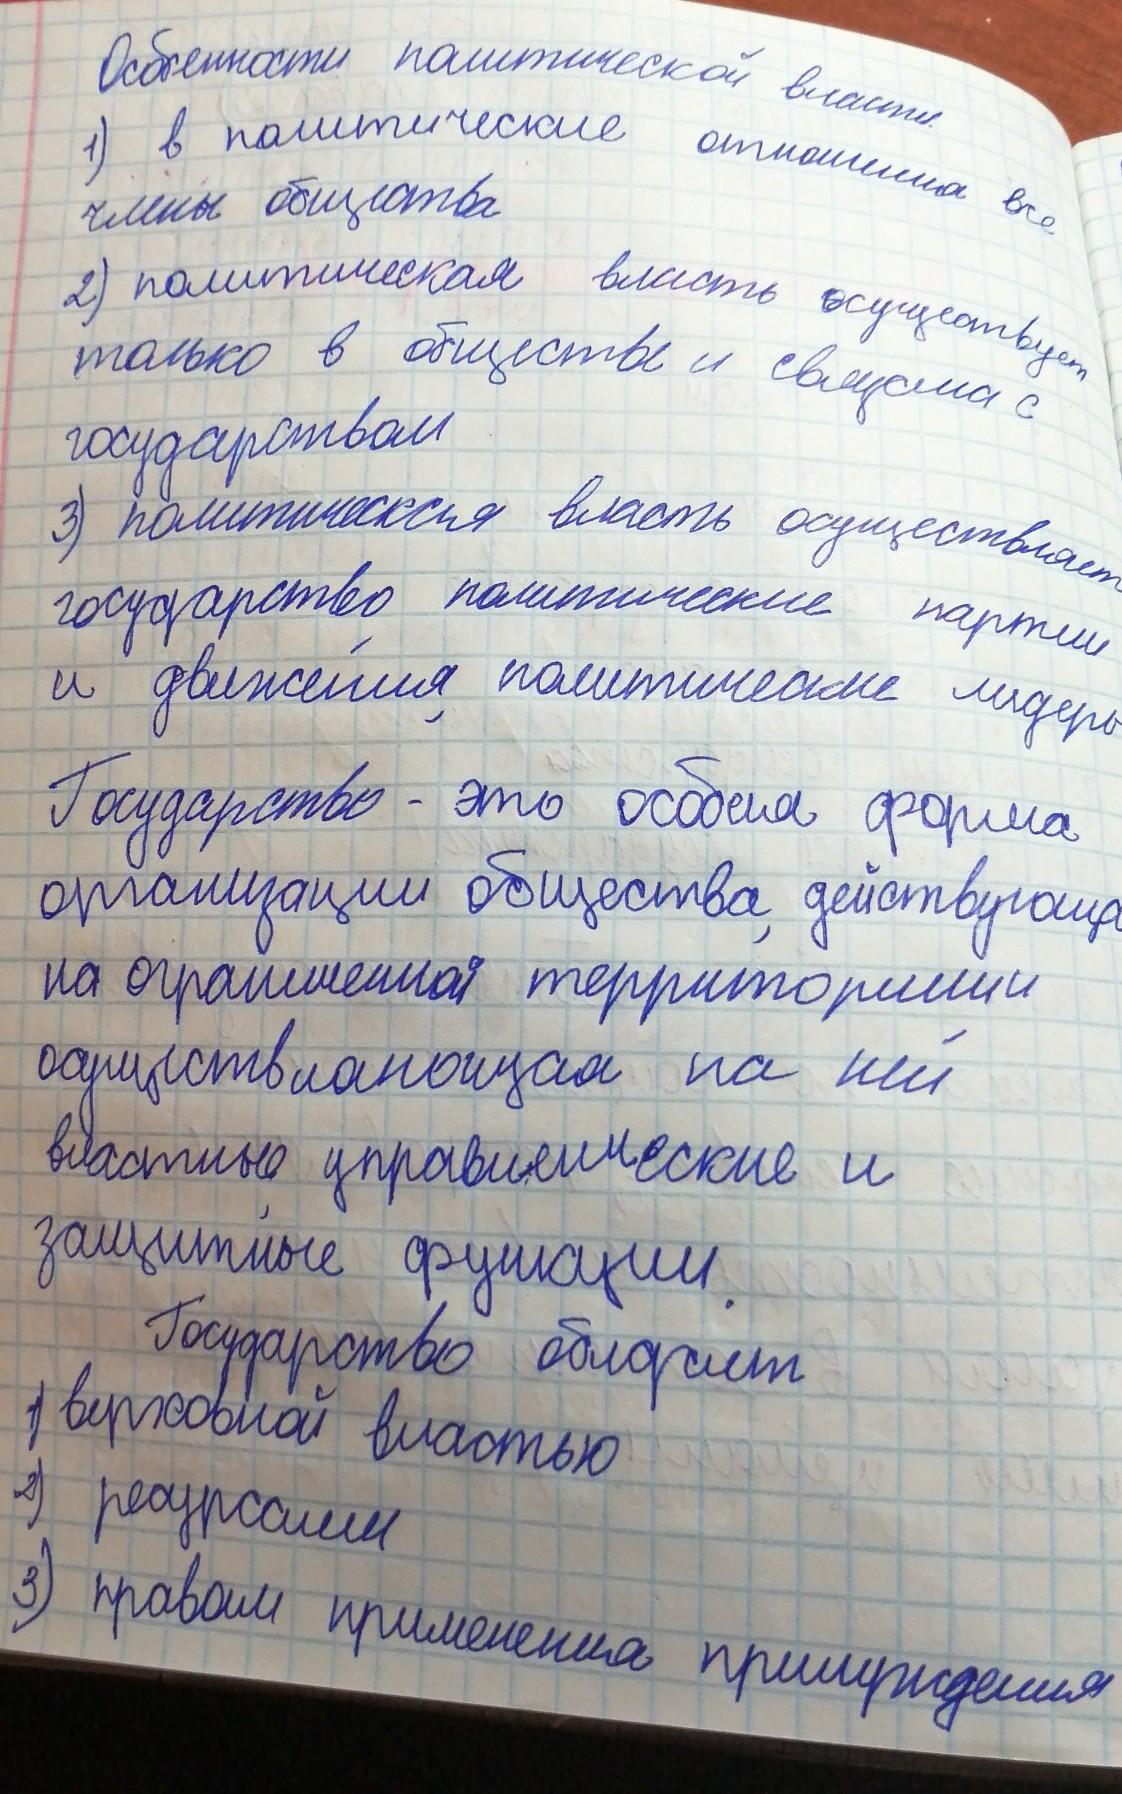 Особенности политической власти.
1) в политические отношения все
члены общества
2) политическая власть осуществует
только в обществе и связана с
государством
3) политическая власть осуществляет
государство политические партии
и движения, политические лидеры
Государство - это особая форма
организации общества, действующа
на ограниченной территории
осуществляющая на ней
властные, управленческие и
защитные функции.
Государство обладает
1) верховной властью
2) ресурсами
3) правом применения принуждения